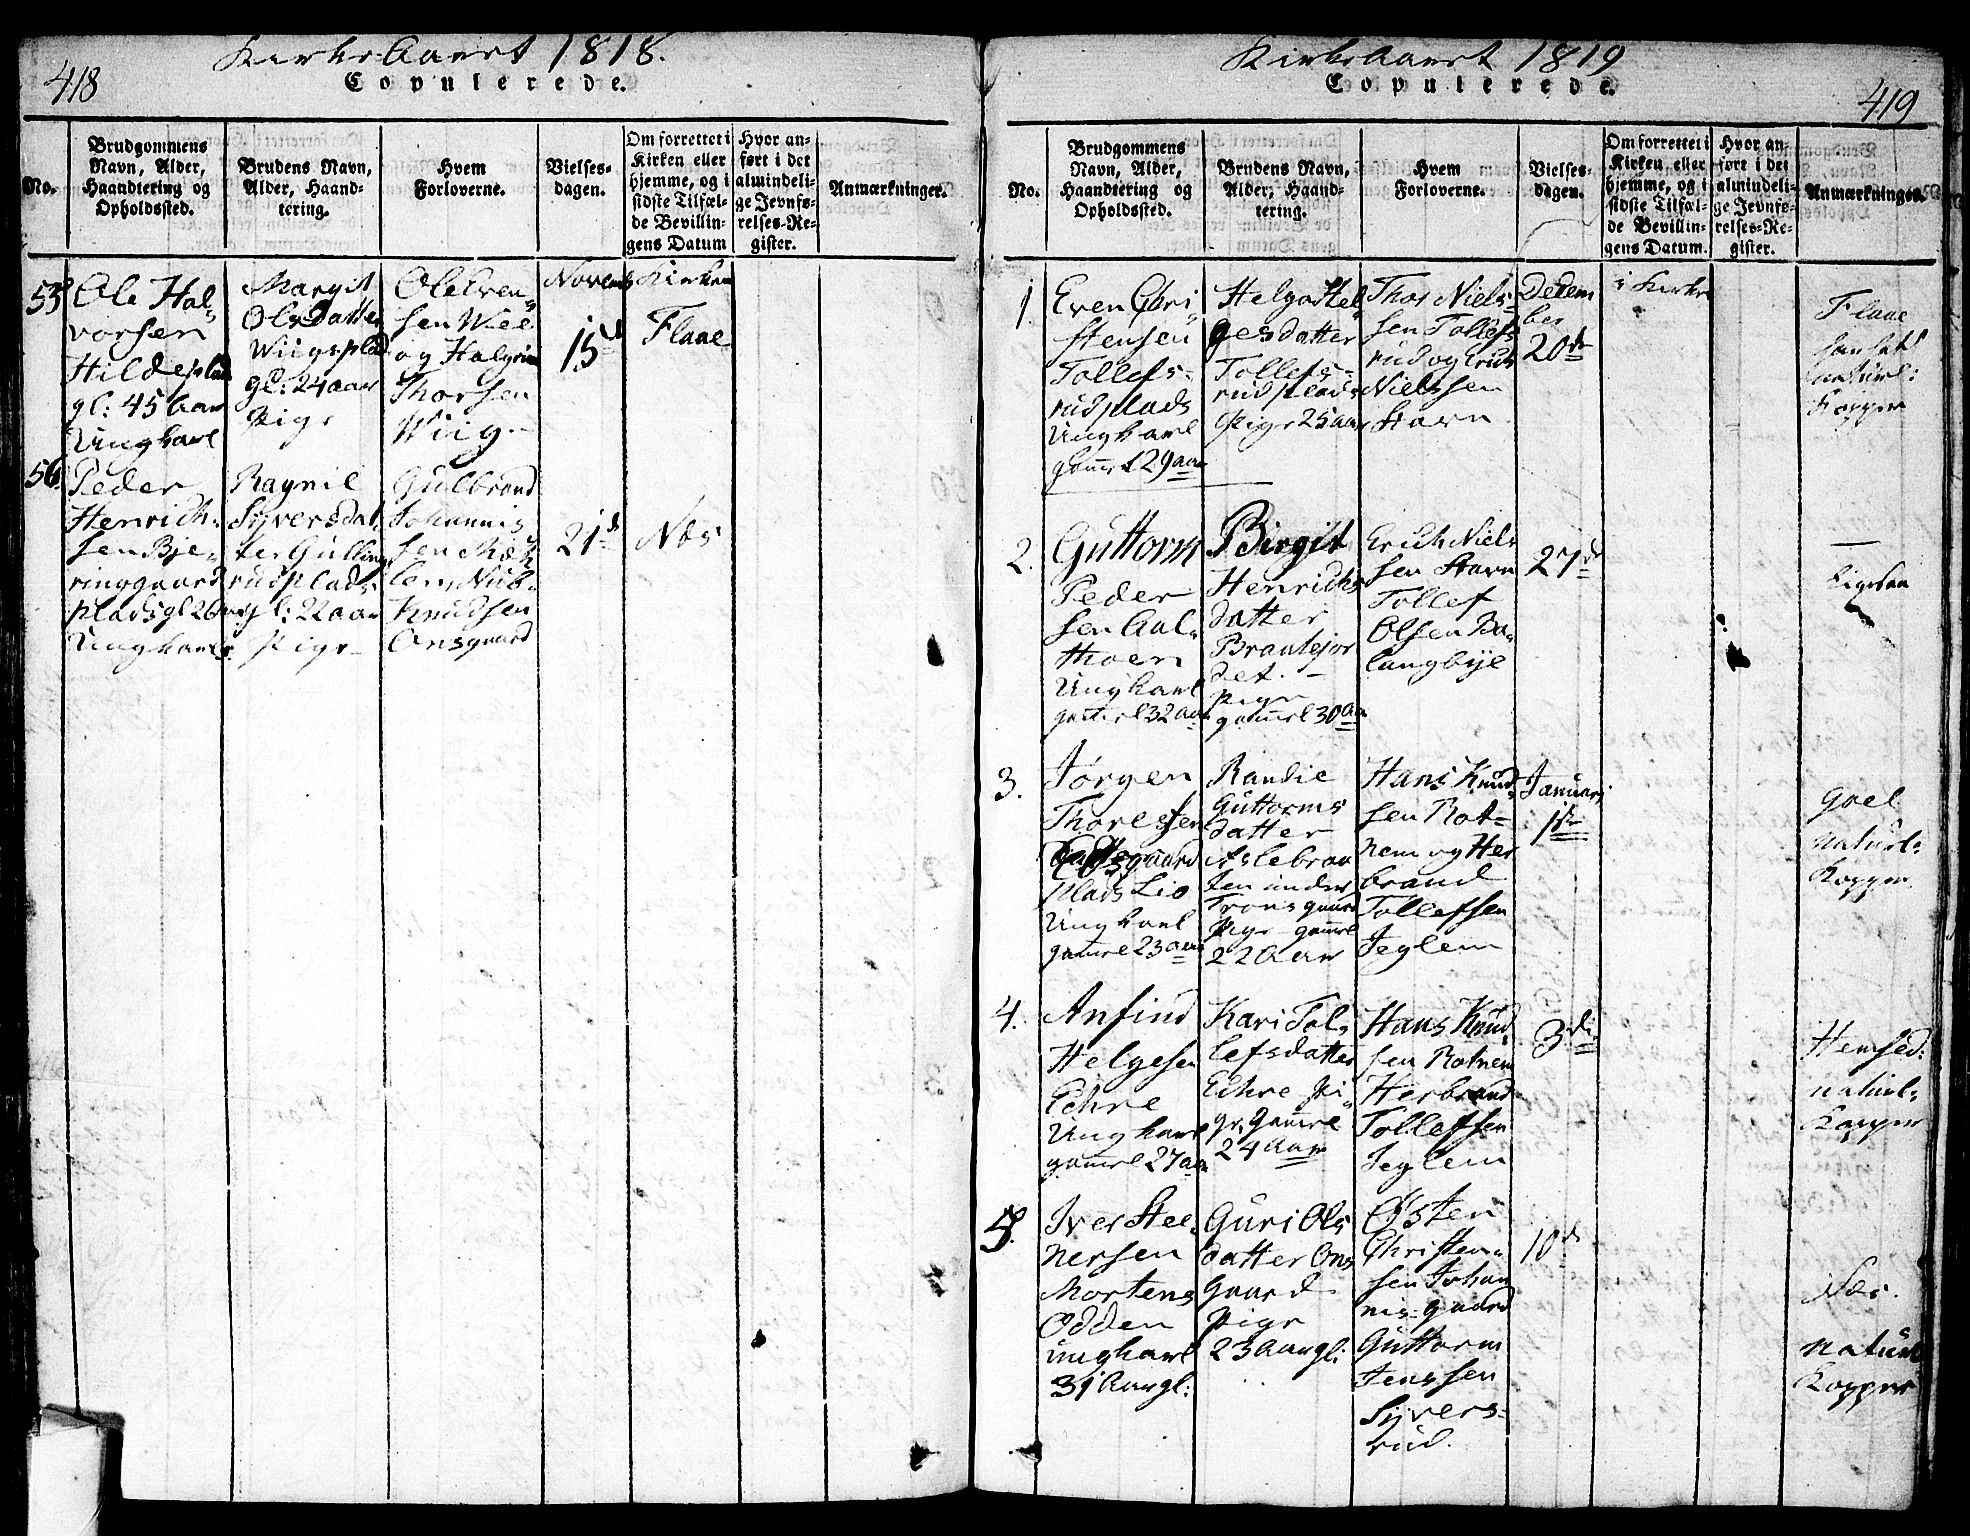 418
Kirke Aaret 1818.
Copulerede.
No.
Brudgommens
Navn, Alder,
Haandtering og
Opholdssted.
Brudens Navn,
Alder, Haand-
tering.
Hvem
Forloverne.
Vielses-
dagen.
Om forrettet i
Kirken eller
hjemme, og i
sidste Tilfæl-
de Bevillin-
gens Datum
Hvor an-
ført i det
almindeli-
ge Jevnfø-
relses-Re-
gister.
Anmærkninger.
55
Ole Hal-
vorsen
Hildeplad
gl: 45 Aar
Ungkarl
Margit
Olsdatter
Wiigsplad
gl: 24 aar
Pige
Ole Even-
sen Wiee
og Halgrim
Thorsen
Wiig
Novemb
15d
Kirken
Flaae
56
Peder
Henrich-
sen Bje-
ringgaard
plads gl 26
Ungkarl
Ragnil
Syversdat-
ter Gullings
rudplads
gl: 22 aar
Pige
Gulbrand
Johannis
sen
Knudsen
Onsgaard
21d
Næs
Kirke Aaret 1819
Copulerede.
419
No.
Brudgommens
Navn, Alder,
Haandtering og
Opholdssted.
Brudens Navn,
Alder, Haand-
tering.
Hvem
Forloverne.
Vielses-
dagen.
Om forrettet i
Kirken eller
hjemme, og i
sidste Tilfæl-
de Bevillin-
gens Datum.
Hvor an-
ført i det
almindeli-
ge Jevnfø-
relses-Re-
gister.
Anmærkninger.
1.
Even Chri-
stensen
Tollefs-
rudplads
Ungkarl
gamel 29 aar
Helga Hel-
gesdatter
Tollefs-
rudplads
Pige 25 aar
Thor Niels-
sen Tollefs
rud og Erich
Nielssen
Stavn
Decem
ber
20de
i Kirke
Flaae
naturl:
Kopper
2.
Guttorm
Peder
sen Aal-
thoen
Ungkarl
gamel 32 aar
Birgit
Henrichs
datter
Brautejor
det.
Pige
gamel 30 aar
Erich Niels
sen Stavn
Tollef
Olsen Ba-
langbye
27de
Ligesaa
3.
Jørgen
Thoresen
plads Lio
Ungkarl
gamel 23 aar
Randie
Guttorms
datter
Aslebraa
ten under
Trons gaard
Pige gamel
22 Aar
Hans Knud-
sen Rot-
nem og Her
brand
Tollefsen
Jeglem
Januari
1ste
Goel
naturl-
Kopper
4.
Anfind
Helgesen
Echre
Ungkarl
gamel 27 aar
Kari Tol-
lefsdatter
Echre Pi-
ge, gamel
24 Aar
Hans Knud
sen Rotnem
Herbrand
Tollefsen
Jeglem
3die
Hemsed:
naturl-
Kopper
5.
Iver Stee-
nersen
Mortens
Odden
ungkarl
31 Aar gl:
Guri Ols
datter Ons
gaard
Pige
23 Aar gl:
Østen
Christen-
sen Johan
nis-gaard
Guttorm
Jenssen
Syvers-
rud.
10d
Næs.
naturl
Kopper